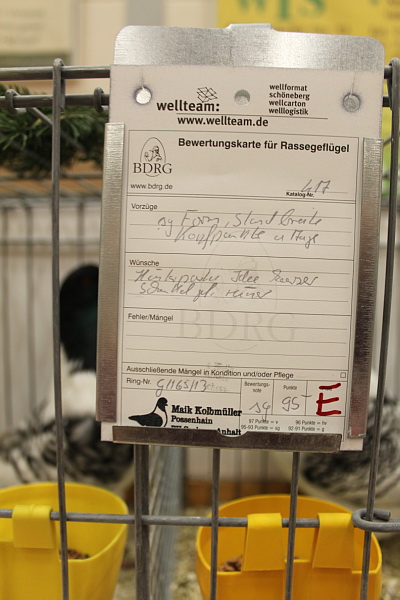 wellteam:
wellformat
schöneberg
wellcarton
welllogistik
www.wellteam.de
Bewertungskarte für Rassegeflügel
BDRG
www.bdrg.de
417
Katalog-Nr.
Vorzüge
sg Form, Stand, Breite
Kopfpunkte u Auge
Wünsche
Hinterpartie Idee
Schnabel
Fehler/Mängel
BDRG
Ausschließende Mängel in Kondition und/oder Pflege
Ring-Nr. G/165/13
Bewertungs-
note
Punkte
sg 95 E
97 Punkte = v 96 Punkte = hv
93-95 Punkte = sg 92-91 g
Maik Kolbmüller
Possenhain